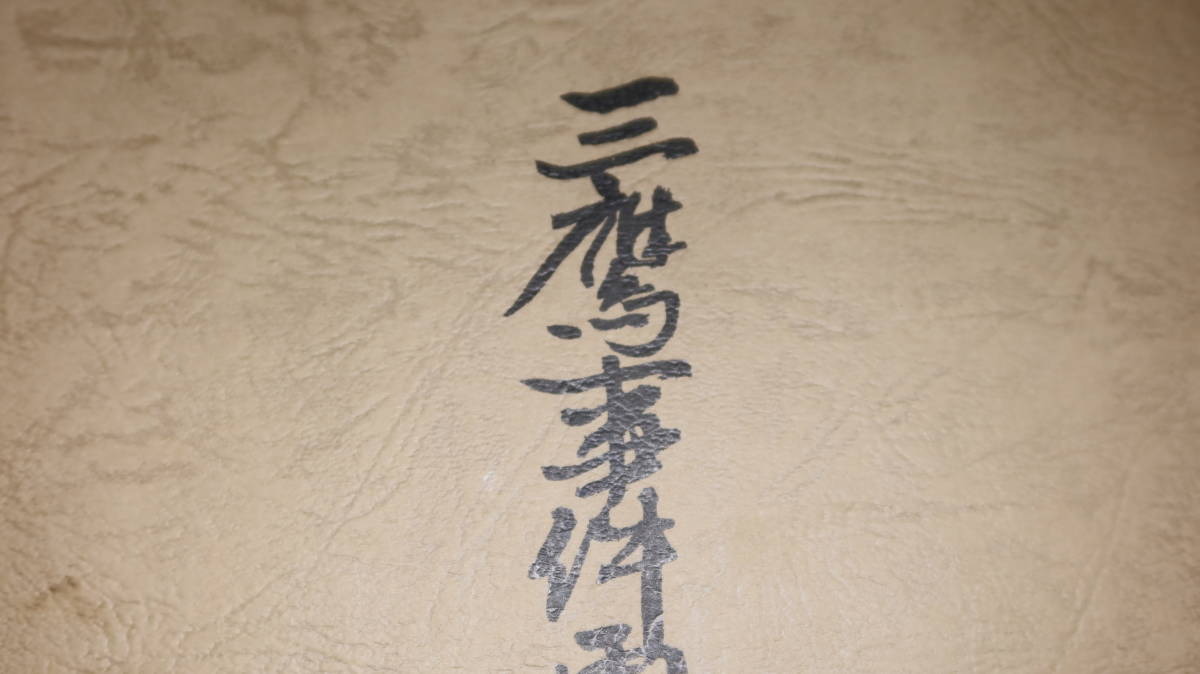 三鷹事件